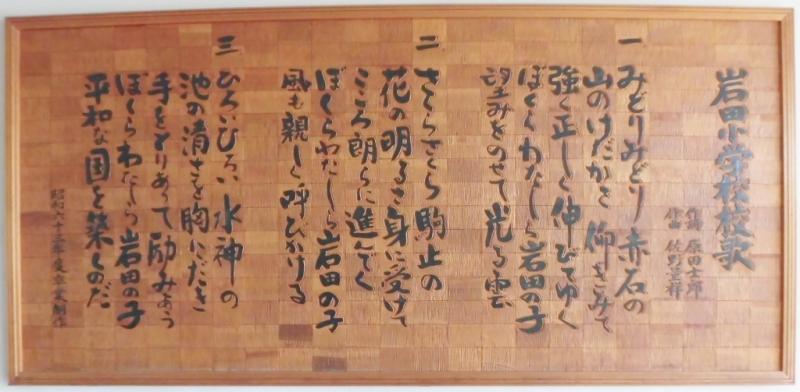 岩田小学校校歌
作詞 原田士郎
作曲 佐野
一 みどりみどり 赤石の
山のけだかさ 仰ぎみて
強く正しく 伸びてゆく
ぼくらわたしら 岩田の子
望みをのせて 光る雲
二 さくらさくら 駒止の
花の明るさ 身に受けて
こころ朗らに 進んでく
ぼくらわたしら 岩田の子
風も親しく 呼びかける
三 ひろいひろい 水神の
池の清さを 胸にだき
手をとりあって 励みあう
ぼくらわたしら 岩田の子
平和な国を 築くのだ
昭和六十三年度卒業制作